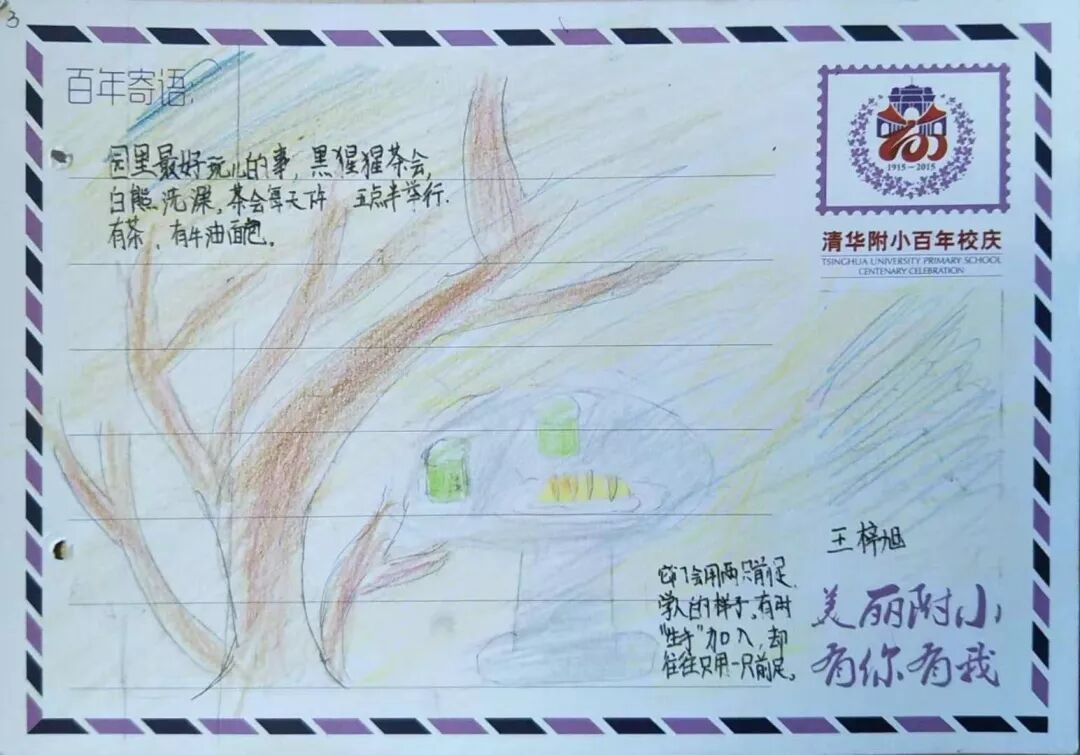 3
百年寄语:
园里最好玩儿的事，黑猩猩茶会，
白熊洗澡。茶会每天下午 五点半举行.
有茶、有牛油面包。
1915-2015
清华附小百年校庆
TSINGHUA UNIVERSITY PRIMARY SCHOOL
CENTENARY CELEBRATION
王梓旭
它们会用两只前足,
学人的样子。有时
"生手"加入,却
往往只用一只前足。
美丽附小
有你有我